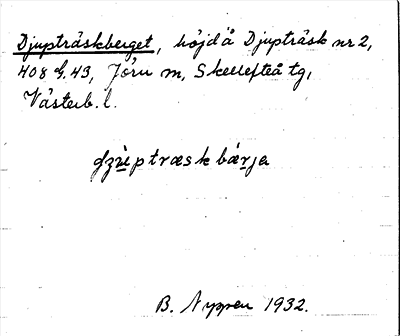 Djupträskberget, höjd å Djupträsk nr 2,
408 f. 43, Jörn sn, Skellefteå tg,
Västerb. l.
ʤzùptræskbær̲ja
B. Nyppen 1932.